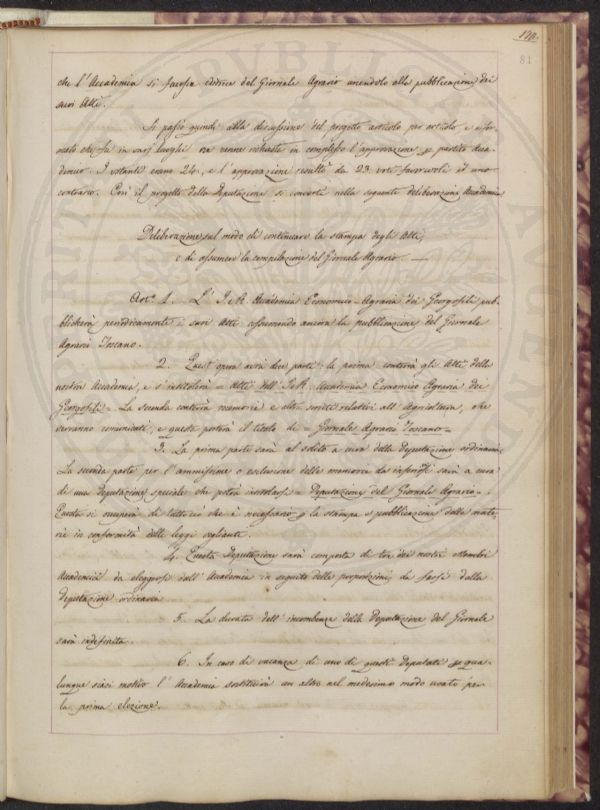 179.
81
che l'Accademia si facesse editrice del Giornale Agrario unendolo alla pubblicazione dei
suoi Atti.
Si passò quindi alla discussione del progetto articolo per articolo e
in varj luoghi ne venne richiesta in complesso l'approvazione p partito Acca-
demico. I votanti erano 24, e l'approvazione resultò da 23 voti favorevoli ed uno
contrario. Così il progetto della Deputazione si convertì nella seguente deliberazione Accademica
Deliberazione sul modo di continuare la stampa degli Atti,
e di assumere la compilazione del Giornale Agrario. —
Art.o 1. L' I. e R. Accademia Economico-Agraria dei Georgofili pub-
blicherà periodicamente i suoi Atti assumendo ancora la pubblicazione del Giornale
Agrario Toscano.
2. Quest'opera avrà due parti: la prima conterrà gli Atti della
nostra Accademia, e s'intitolerà = Atti dell'I. e R. Accademia Economico Agraria dei
Georgofili = La seconda conterrà memorie e altri scritti relativi all'Agricoltura, che
verranno comunicati, e questa porterà il titolo di = Giornale Agrario Toscano =
3. La prima parte sarà al solito a cura della Deputazione ordinaria.
La seconda parte per l'ammissione o esclusione delle memorie da inserirsi sarà a cura
di una Deputazione speciale che potrà intitolarsi = Deputazione del Giornale Agrario =.
Questa si occuperà di tutto ciò che è necessario p la stampa e pubblicazione delle mate-
rie in conformità delle leggi veglianti.
4. Questa Deputazione sarà composta di tre dei nostri Membri
Accademici da eleggersi dall'Accademia in seguito delle proposizioni da farsi dalla
Deputazione ordinaria.
5. La durata dell'incombenza della Deputazione del Giornale
sarà indefinita.
6. In caso di vacanza di uno di questi Deputati p qua-
lunque siasi motivo l'Accademia sostituirà un altro nel medesimo modo usato per
la prima elezione.